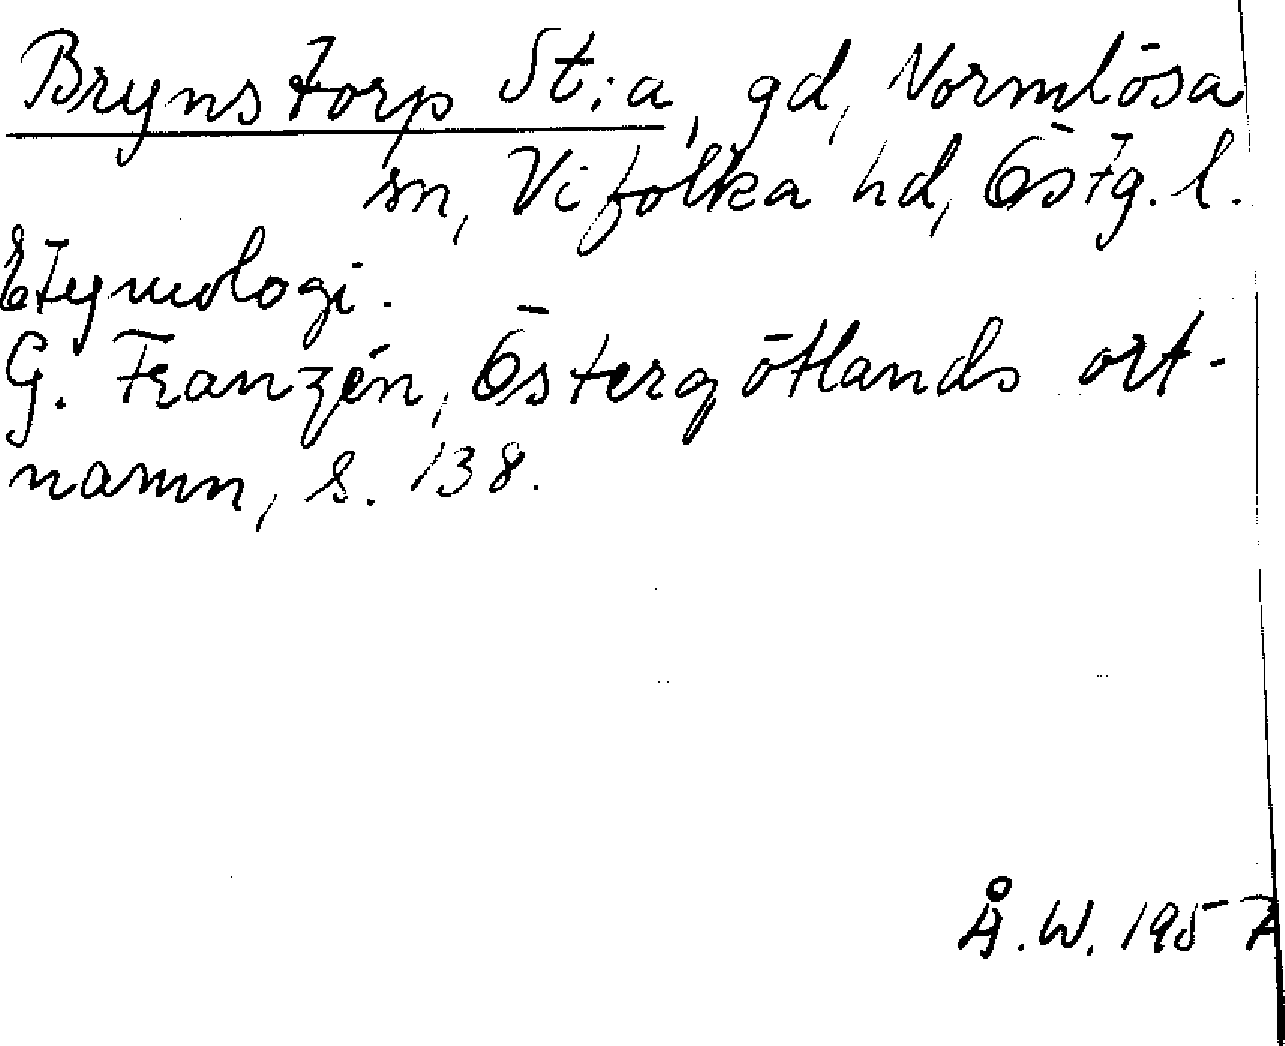 Brynstorp St:a, gd, Normlösa
sn, Vifolka hd, Östg. l.
Etymologi.
G. Franzén, Östergötlands ort-
namn, s. 138.
Å.W. 1957